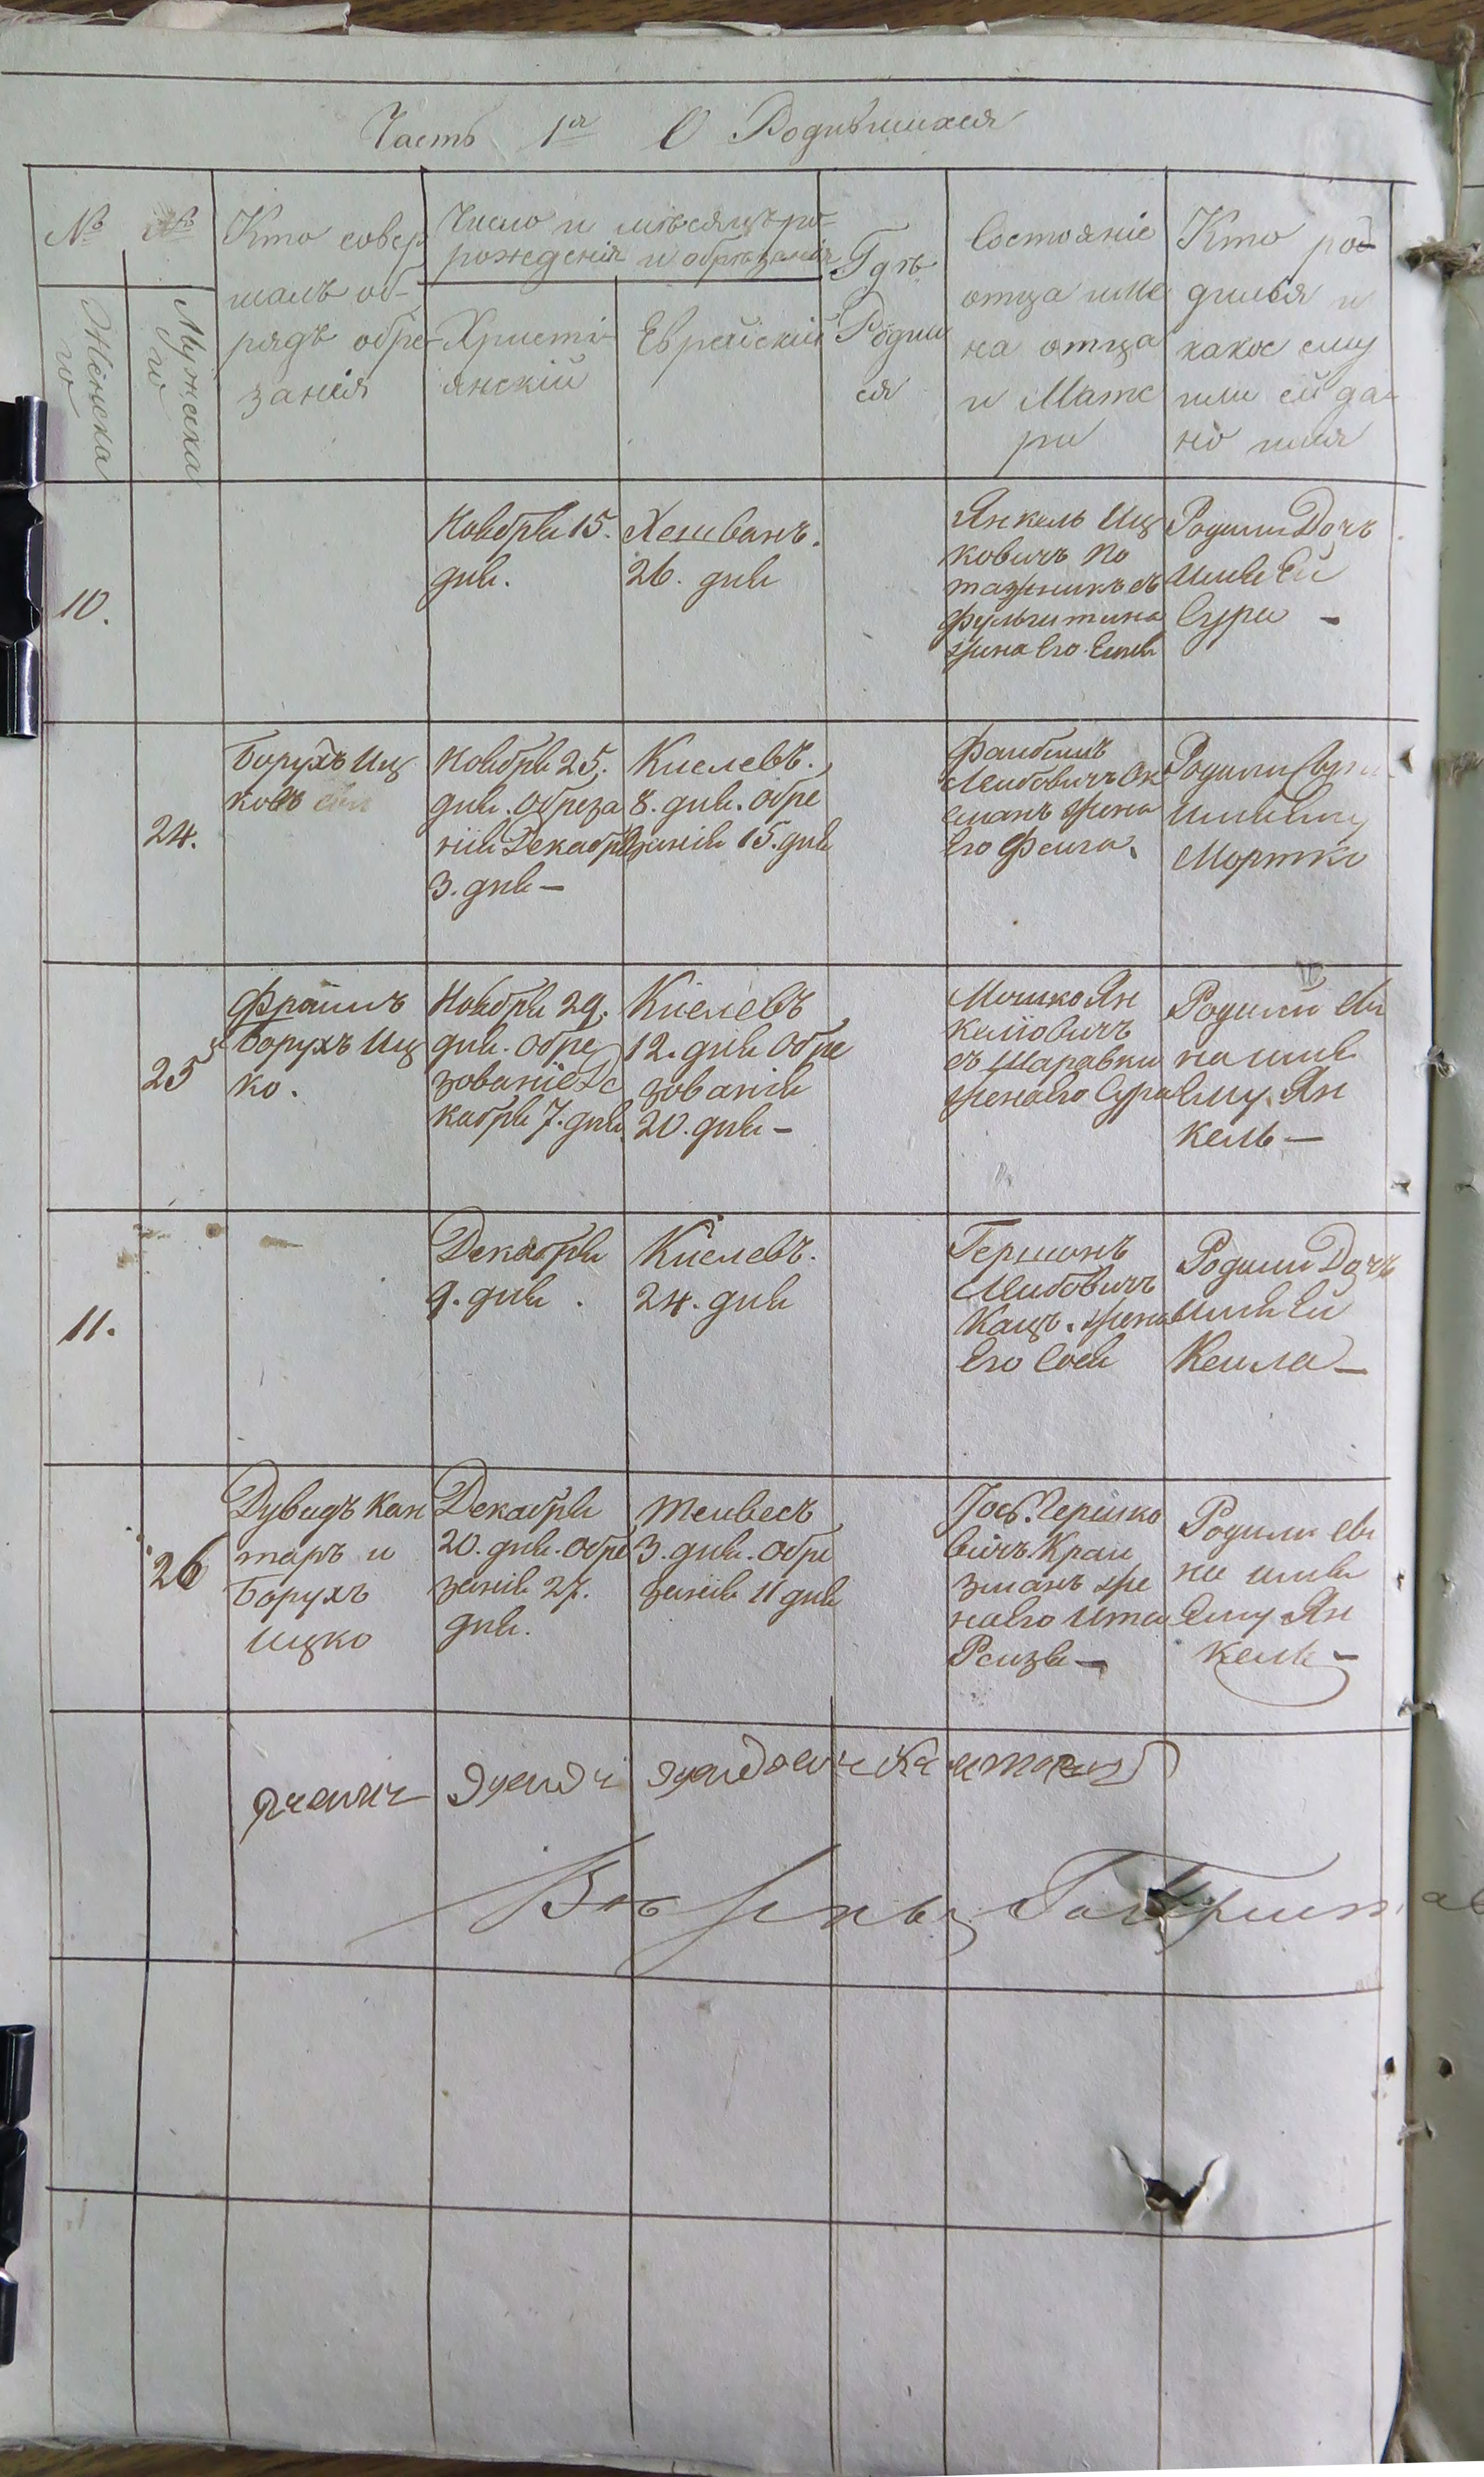 Часть 1я О Родившихся
№ №
Женска
го
Мужеска
го
Кто совер
шалъ об-
рядъ обре-
занія
Число и мѣсяцъ ро-
рожденія и обрѣзанія
Христі-
янскій
Еврейскій
Гдѣ
Родил
ся
Состояніе
отца име
на отца
и Мате
ри
Кто ро-
дился и
какое ему
или ей да-
но имя
10.
Ноября 15.
дня.
Хешванъ.
26. дня
Янкель Иц
ковичъ По
ташникъ съ
жена Его
Родили Дочь
имя Ей
Сура -
24.
Борухъ Иц
ковъ
Ноября 25.
дня. Обреза
нія Декабря
3. дня -
Кислевъ.
8. дня. Обре
занія 15. дня
Файбишъ
Лейбовичъ Ок
сманъ жена
Его Фейга.
Родили Сына
имя Ему
Мортко
25
Фроимъ
и Борухъ Иц
ко.
Ноября 29.
дня. Обре
зованіе Де
кабря 7. дня
Кислевъ
12. дня Обре
зованія
20. дня -
Мошко Ян
келіовичъ
съ Шаравки
жена Его Сура
Родили Сы
на имя
Ему Ян
кель -
11.
Декабря
9. дня.
Кислевъ.
24. дня
Гершонъ
Лейбовичъ
Кацъ. жена
Его Сося
Родили Дочь
имя Ей
Кейла -
26
Дувидъ Кан
таръ и
Борухъ
Ицко
Декабря
20. дня. Обре
занія 27.
дня.
Тейвесъ
3. дня. Обре
занія 11 дня
Іосъ Гершко
вичъ Край
зманъ же
на Его Ита
Рейзя -
Родили Сы
на имя
Ему Ян
кель -